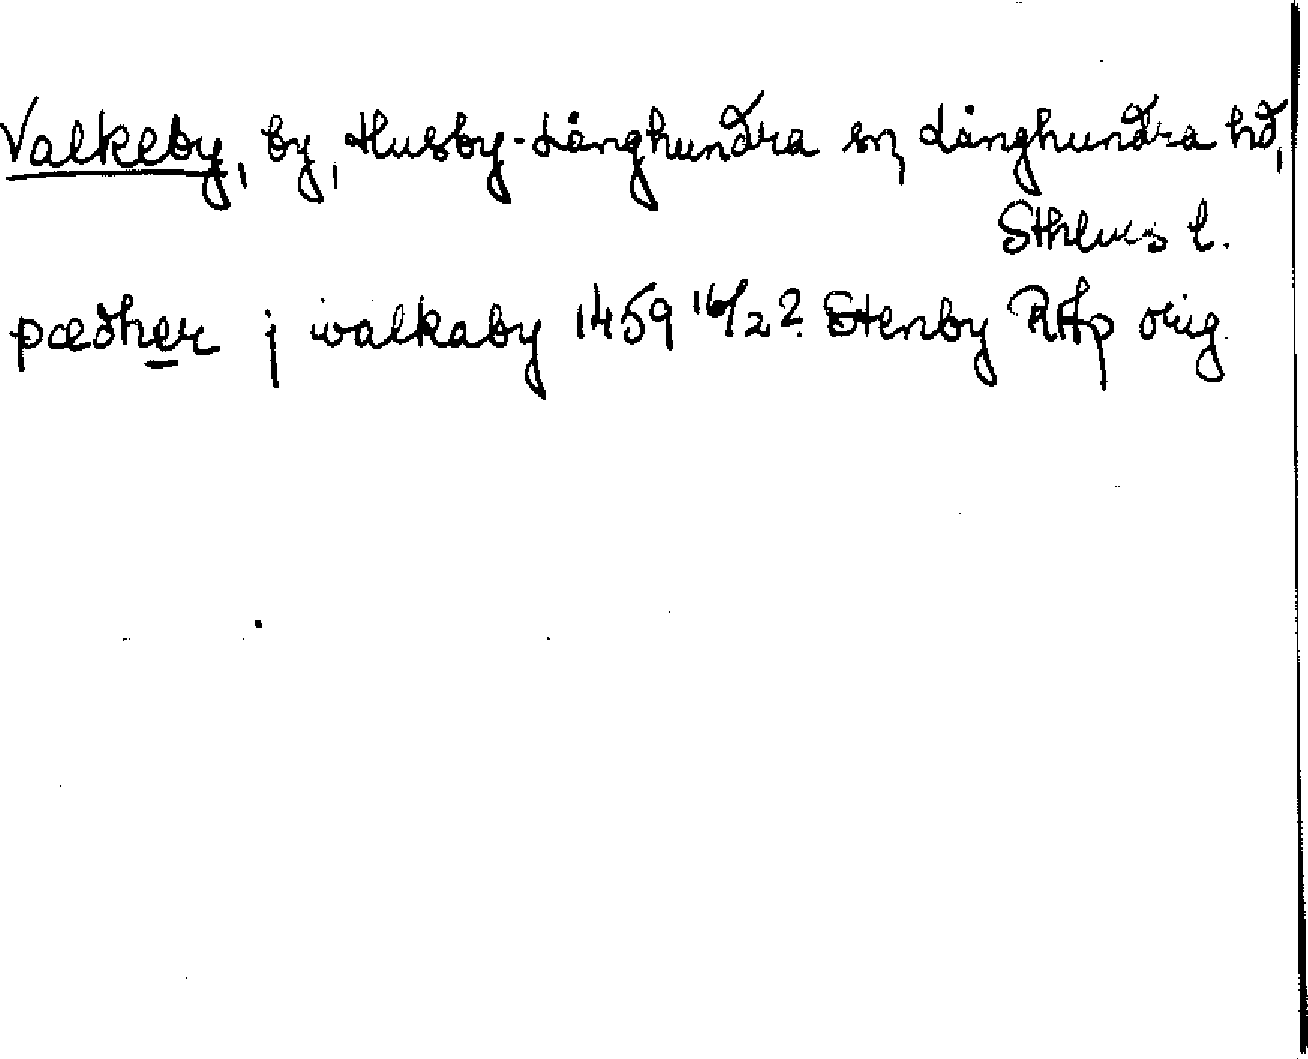 Valkeby, by, Husby-Långhundra sn, Långhundra hd,
Sthlms l.
pædher j walkaby 1459 16/2? Stenby RAp orig.